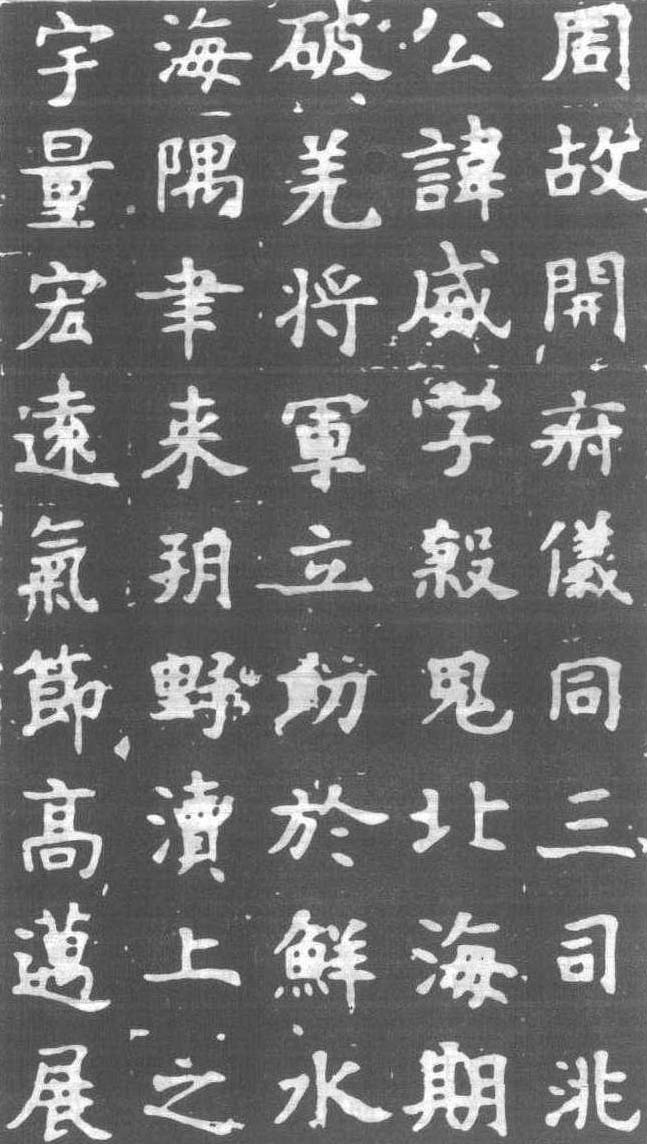 周故開府儀同三司洮
公諱威字殺鬼北海期
破羌将軍立功於鮮水
海隅聿来朔野瀆上之
宇量宏遠氣節髙邁展